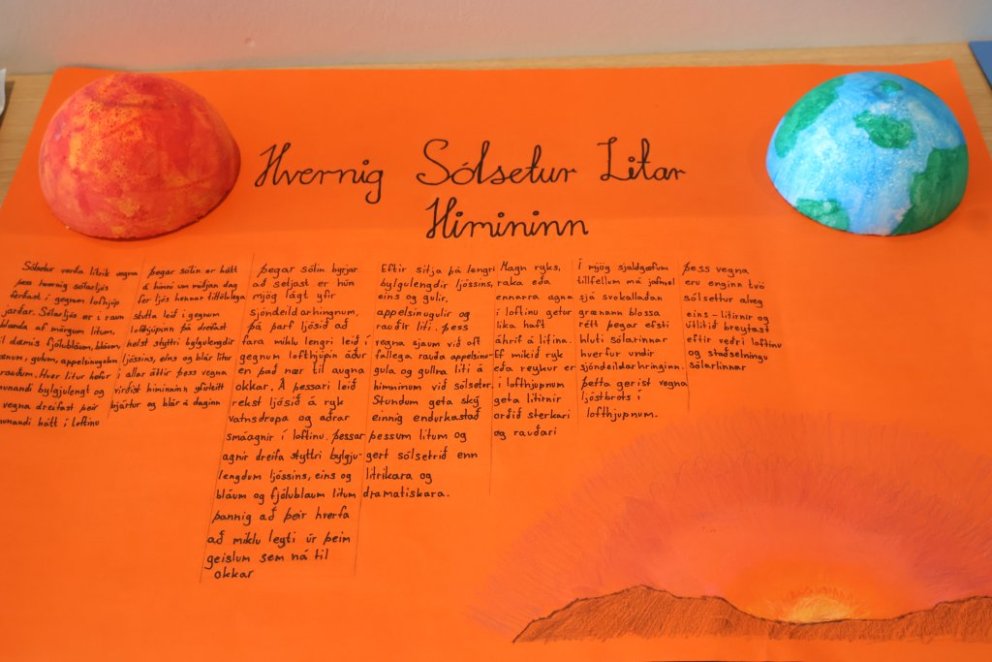 Hvernig Sólsetur Litar
Himininn
Sólsetur verða litrík vegna
þess hvernig sólarljós
ferðast í gegnum lofthjúp
jarðar. Sólarljós er í raun
blanda af mörgum litum,
til dæmis fjólubláum, bláum,
gulum, appelsínugulum
rauðum. Hver litur hefur
bylgjulengd og
vegna dreifast þeir
hátt í loftinu
Þegar sólin er hátt
á himni um miðjan dag
fer ljós hennar tiltölulega
stutta leið í gegnum
lofthjúpinn þá dreifast
helst styttri bylgjulengdir
ljóssins, eins og blár litur
í allar áttir þess vegna
virðist himinninn yfirleitt
bjartur og blár á daginn
þegar sólin byrjar
að setjast er hún
mjög lágt yfir
sjóndeildarhringnum,
þá þarf ljósið að
fara miklu lengri leið í
gegnum lofthjúpin áður
en það nær til augna
okkar. Á þessari leið
rekst ljósið á ryk
vatnsdropa og aðrar
smáagnir í loftinu. þessar
agnir dreifa styttri bylgju-
lengdum ljóssins, eins og
bláum og fjólublaum litum
þannig að þeir hverfa
að miklu leyti úr þeim
geislum sem ná til
okkar
Eftir sitja þá lengri
bylgulengdir ljóssins,
eins og gulir,
appelsínugulir og
rauðir liti. þess
vegna sjáum við oft
fallega rauða appelsínu-
gula og gullna liti á
himninum við sólsetur.
Stundum geta ský
einnig endurkastað
þessum litum og
gert sólsetrið enn
litríkara og
dramatískara.
Magn ryks,
raka eða
annarra agna
í loftinu getur
líka haft
áhrif á litina.
Ef mikið ryk
eða reykur er
í lofthjúpnum
geta litirnir
orðið sterkari
og rauðari
Í mjög sjaldgæfum
tilfellum má jafnvel
sjá svokallaðan
grænann blossa
rétt þegar efsti
hluti sólarinnar
hverfur undir
sjóndeildarhringinn.
þetta gerist vegna
ljósbrots í
lofthjúpnum.
þess vegna
eru enginn tvö
sólsettur alveg
eins - litirnir og
útlitið breytast
eftir veðri loftinu
og staðsetningu
sólarinnar